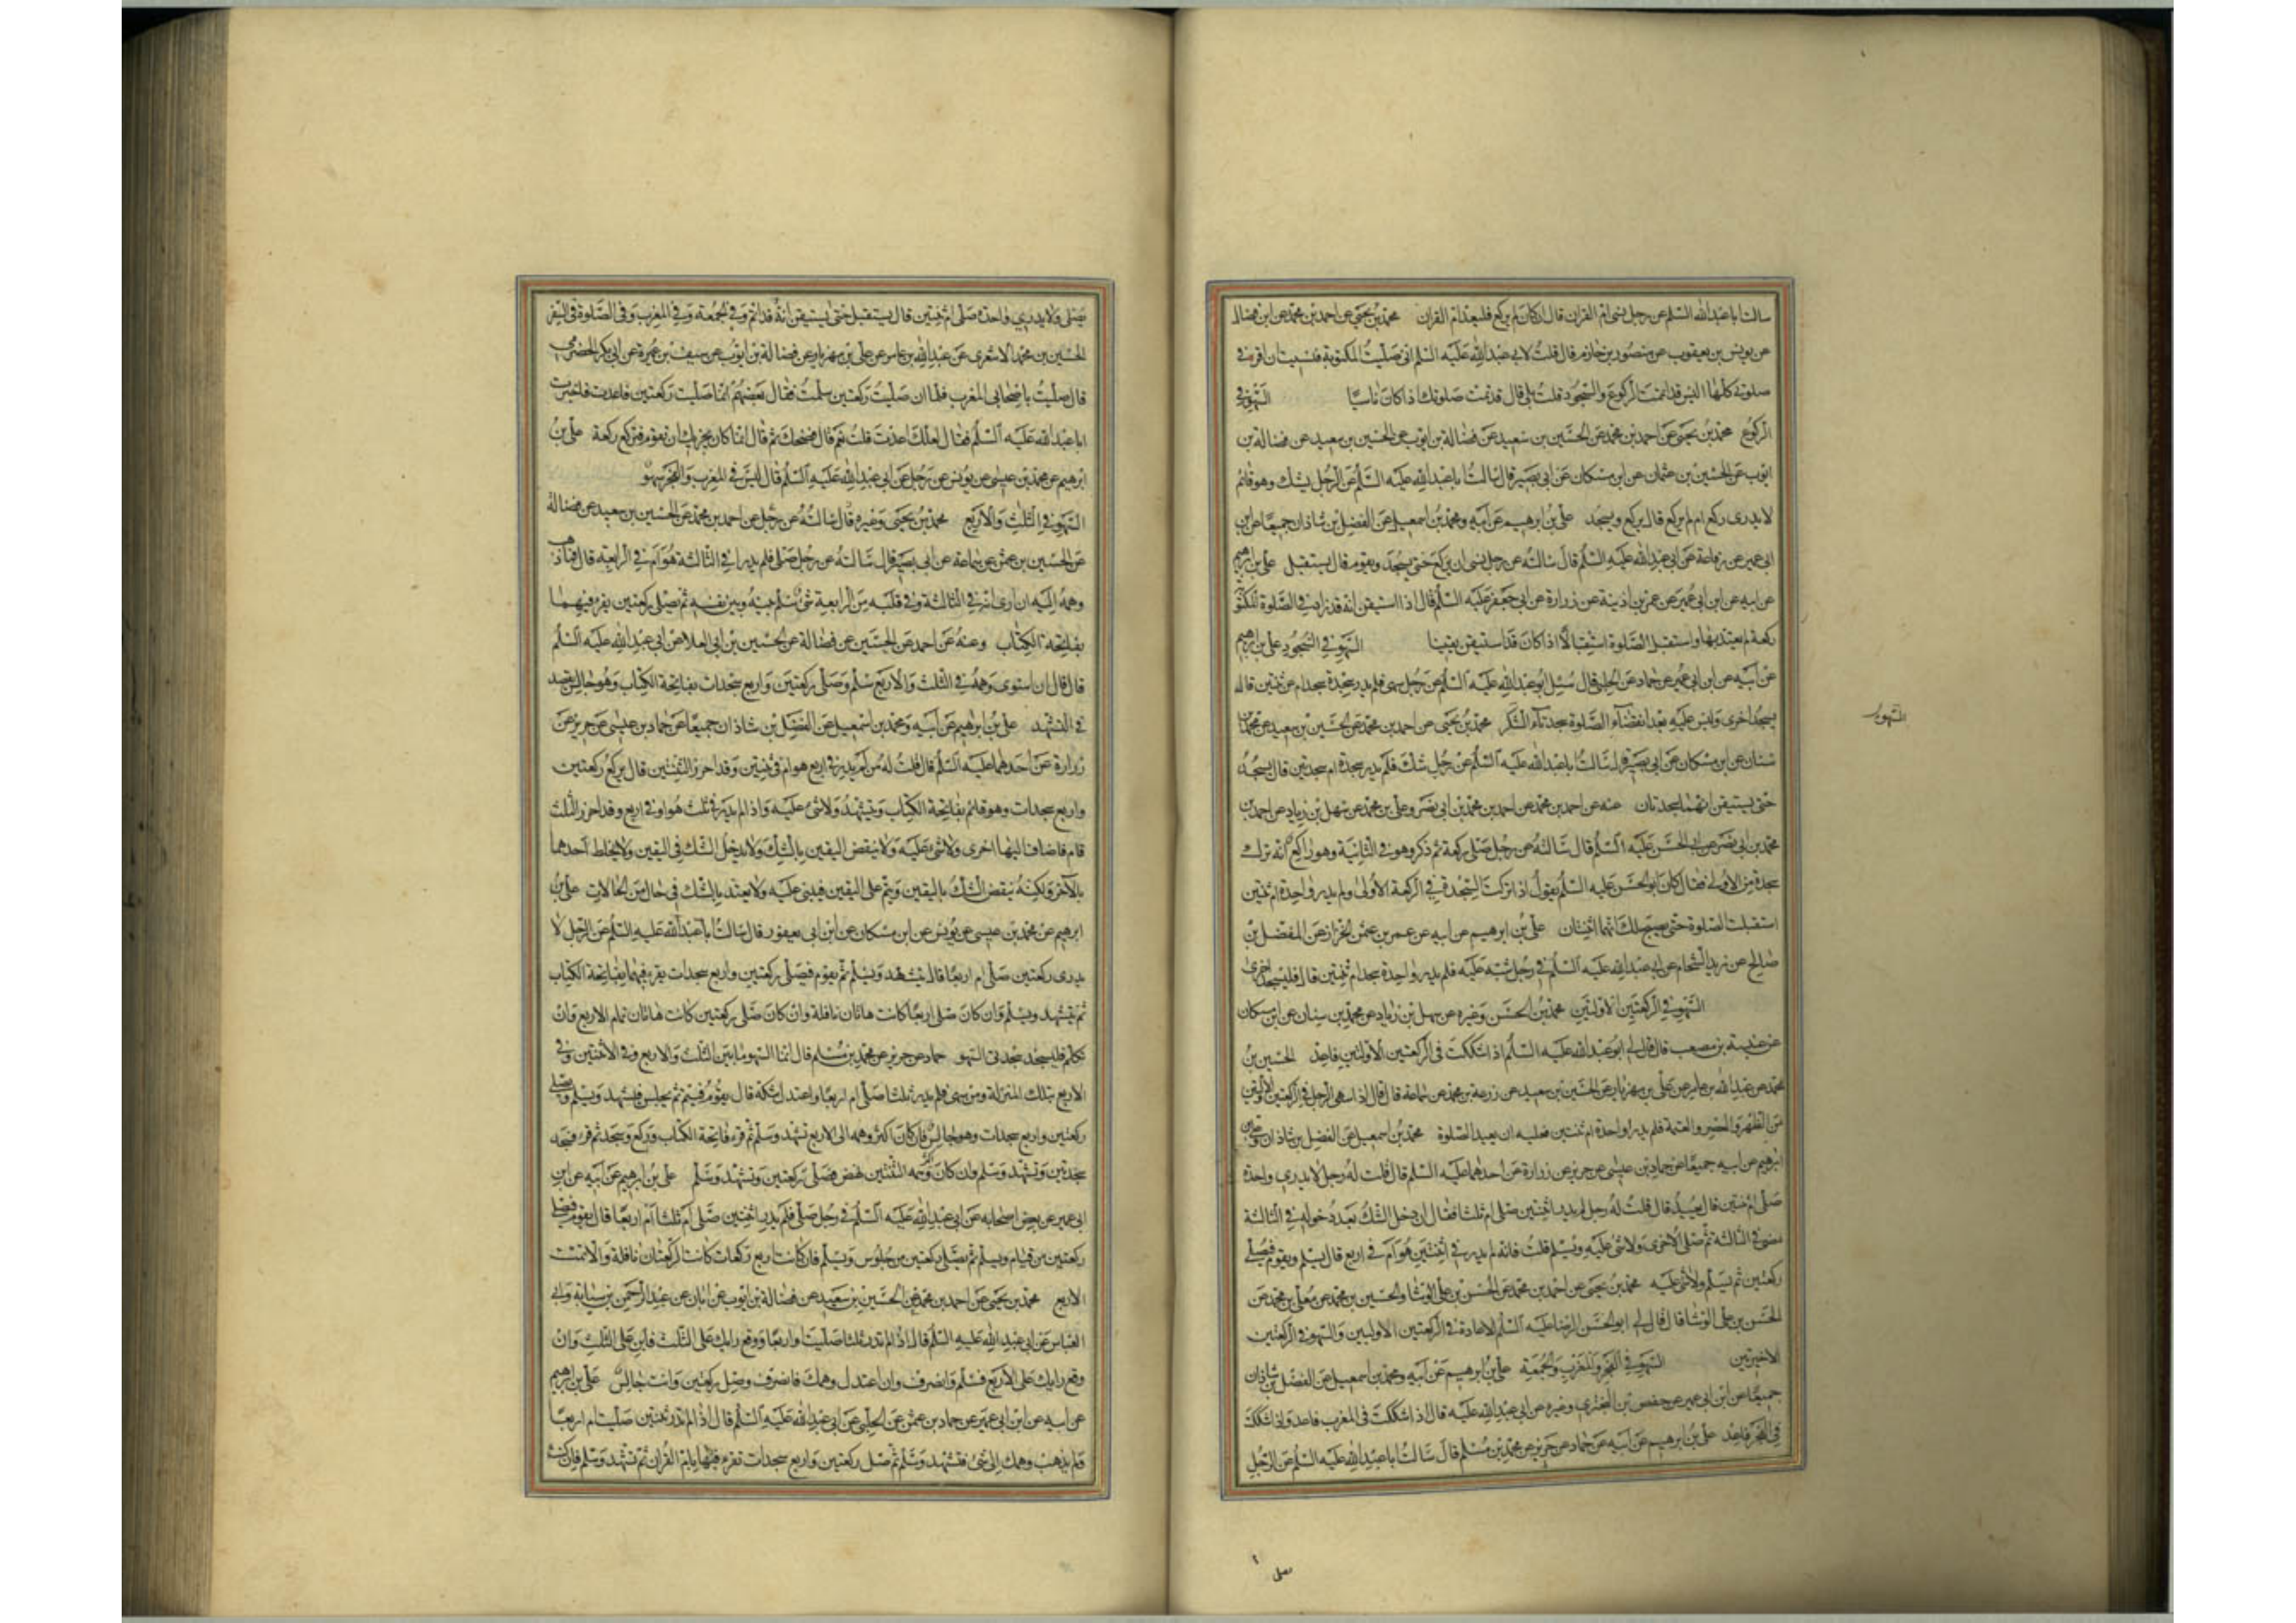 سالت ابا عبدالله السلم عن رجل نسى ام القران قال ان كان لم يركع فليعد ام القران محمد بن يحيى عن احمد بن محمد عن ابن فضال
عن يونس بن يعقوب عن منصور بن حازم قال قلت لابى عبدالله عليه السلم انى صليت المكتوبة فنسيت ان اقرء فى
صلوتى كلها اليس قد اتممت الركوع والسجود قلت بلى قال قد تمت صلوتك اذا كان ناسيا السهو فى
الركوع محمد بن يحيى عن احمد بن محمد عن الحسين بن سعيد عن فضالة بن ايوب عن الحسين بن سعيد عن فضالة بن
ايوب عن الحسين بن عثمان عن ابن مسكان عن ابى بصير قال سالت ابا عبدالله عليه السلم عن الرجل يشك وهو قائم
لا يدرى ركع ام لم يركع قال يركع ويسجد على بن ابرهيم عن ابيه ومحمد بن اسمعيل عن الفضل بن شاذان جميعا عن ابن
ابى عمير عن رفاعة عن ابى عبدالله عليه السلم قال سالته عن رجل نسى ان يركع حتى يسجد ويقوم قال يستقبل على بن ابرهيم
عن ابيه عن ابن ابى عمير عن عمر بن اذينة عن زرارة عن ابى جعفر عليه السلم قال اذا استيقن انه قد زاد فى الصلوة المكتوبة
ركعة لم يعتد بها واستقبل الصلوة استقبالا اذا كان قد استيقن يقينا السهو فى السجود على بن ابرهيم
عن ابيه عن ابن ابى عمير عن حماد عن الحلبى قال سئل ابو عبدالله عليه السلم عن رجل سهى فلم يدر سجدة سجد ام ثنتين قال
يسجد اخرى وليس عليه بعد انقضآء الصلوة سجدتا السهو محمد بن يحيى عن احمد بن محمد عن الحسين بن سعيد عن محمد بن
سنان عن ابن مسكان عن ابى بصير قال سالت ابا عبدالله عليه السلم عن رجل شك فلم يدر سجدة ام سجدتين قال يسجد
حتى يستيقن انهما سجدتان عنه عن احمد بن محمد عن احمد بن محمد بن ابى نصر وعلى بن محمد عن سهل بن زياد عن احمد بن
محمد بن ابى نصر عن ابى الحسن عليه السلم قال سالته عن رجل صلى ركعة ثم ذكر وهو فى الثانية وهو راكع انه ترك
سجدة من الاولى فقال كان ابو الحسن عليه السلم يقول اذا تركت السجدة فى الركعة الاولى ولم يدر واحدة ام ثنتين
استقبلت الصلوة حتى يصح لك انهما اثنتان على بن ابرهيم عن ابيه عن عمرو بن عثمن الخزاز عن المفضل بن
صالح عن زيد الشحام عن ابى عبدالله عليه السلم فى رجل شبه عليه فلم يدر واحدة سجد ام ثنتين قال فليسجد اخرى
السهو فى الركعتين الاولتين محمد بن الحسن وغيره عن سهل بن زياد عن محمد بن سنان عن ابن مسكان
عن عنبسة بن مصعب قال قال لى ابو عبدالله عليه السلم اذا شككت فى الركعتين الاولتين فاعد الحسين بن
محمد عن عبدالله بن عامر عن على بن مهزيار عن الحسين بن سعيد عن زرعة بن محمد عن سماعة قال قال اذا سهى الرجل فى الركعتين الاولتين
من الظهر والعصر والعتمة فلم يدر واحدة ام ثنتين فعليه ان يعيد الصلوة محمد بن اسمعيل عن الفضل بن شاذان وعلى بن
ابرهيم عن ابيه جميعا عن حماد بن عيسى عن حريز عن زرارة عن احدهما عليه السلم قال قلت له رجل لا يدرى واحدة
صلى ام ثنتين قال يعيد قال قلت له رجل لم يدر اثنتين صلى ام ثلثا فقال ان دخل الشك بعد دخوله فى الثالثة
مضى فى الثالثة ثم صلى الاخرى ولا شئ عليه ويسلم قلت فانه لم يدر فى اثنتين هو ام فى اربع قال يسلم ويقوم فيصلى
ركعتين ثم يسلم ولا شئ عليه محمد بن يحيى عن احمد بن محمد عن الحسن بن على الوشا والحسين بن محمد عن معلى بن محمد عن
الحسن بن على الوشا قال قال لى ابو الحسن الرضا عليه السلم الاعادة فى الركعتين الاوليين والسهو فى الركعتين
الاخيرتين السهو فى الفجر والمغرب والجمعة على بن ابرهيم عن ابيه ومحمد بن اسمعيل عن الفضل بن شاذان
جميعا عن ابن ابى عمير عن حفص بن البخترى وغيره عن ابى عبدالله عليه قال اذا شككت فى المغرب فاعد واذا شككت
فى الفجر فاعد على بن ابرهيم عن ابيه عن حماد عن حريز عن محمد بن مسلم قال سالت ابا عبدالله عليه السلم عن الرجل
السهو
يصلى ولا يدرى واحدة صلى ام ثنتين قال يستقبل حتى يستيقن انه قد اتم وفى الجمعة وفى المغرب وفى الصلوة فى السفر
الحسين بن محمد الاشعرى عن عبدالله بن عامر عن على بن مهزيار عن فضالة بن ايوب عن سيف بن عميرة عن ابى بكر الحضرمى
قال صليت باصحابى المغرب فلما ان صليت ركعتين سلمت فقال بعضهم انما صليت ركعتين فاعدت فاخبرت
ابا عبدالله عليه السلم فقال لعلك اعدت قلت نعم قال فضحك ثم قال انما كان يجزيك ان تقوم فتركع ركعة على بن
ابرهيم عن محمد بن عيسى عن يونس عن رجل عن ابى عبدالله عليه السلم قال ليس فى المغرب والفجر سهو
السهو فى الثلث والاربع محمد بن يحيى وغيره قال سالته عن رجل عن احمد بن محمد عن الحسين بن سعيد عن فضالة
عن الحسين بن عثمن عن سماعة عن ابى بصير قال سالته عن رجل صلى فلم يدر افى الثالثة هو ام فى الرابعة قال فما ذهب
وهمه اليه ان راى انه فى الثالثة وفى قلبه من الرابعة شئ سلم بينه وبين نفسه ثم يصلى ركعتين يقرء فيهما
بفاتحة الكتاب وعنه عن احمد عن الحسين عن فضالة عن الحسين بن ابى العلا عن ابى عبدالله عليه السلم
قال قال ان استوى وهمه فى الثلث والاربع سلم وصلى ركعتين واربع سجدات بفاتحة الكتاب وهو جالس يقصد
فى التشهد على بن ابرهيم عن ابيه ومحمد بن اسمعيل عن الفضل بن شاذان جميعا عن حماد بن عيسى عن حريز عن
زرارة عن احدهما عليه السلم قال قلت له من لم يدر فى اربع هو ام فى ثنتين وقد احرز الثنتين قال يركع ركعتين
واربع سجدات وهو قائم بفاتحة الكتاب ويتشهد ولا شئ عليه واذا لم يدر فى ثلث هو او فى اربع وقد احرز الثلث
قام فاضاف اليها اخرى ولا شئ عليه ولا ينقض اليقين بالشك ولا يدخل الشك فى اليقين ولا يخلط احدهما
بالآخر ولكنه ينقض الشك باليقين ويتم على اليقين فيبنى عليه ولا يعتد بالشك فى حال من الحالات على بن
ابرهيم عن محمد بن عيسى عن يونس عن ابن مسكان عن ابن ابى يعفور قال سالت ابا عبدالله عليه السلم عن الرجل لا
يدرى ركعتين صلى ام اربعا قال يتشهد ويسلم ثم يقوم فيصلى ركعتين واربع سجدات يقرء فيهما بفاتحة الكتاب
ثم يتشهد ويسلم وان كان صلى اربعا كانت هاتان نافلة وان كان صلى ركعتين كانت هاتان تمام الاربع وان
تكلم فليسجد سجدتى السهو حماد عن حريز عن محمد بن مسلم قال انما السهو ما بين الثلث والاربع وفى الاثنتين وفى
الاربع بتلك المنزلة ومن سهى فلم يدر ثلثا صلى ام اربعا واعتدل شكه قال يقوم فيتم ثم يجلس فيتشهد ويسلم ويصلى
ركعتين واربع سجدات وهو جالس فان كان اكثر وهمه الى الاربع تشهد وسلم ثم قرء فاتحة الكتاب وركع وسجد ثم قرء فسجد
سجدتين وتشهد وسلم وان كان اكثر وهمه الثنتين نهض فصلى ركعتين وتشهد وسلم على بن ابرهيم عن ابيه عن ابن
ابى عمير عن بعض اصحابه عن ابى عبدالله عليه السلم فى رجل صلى فلم يدر اثنتين صلى ام ثلثا ام اربعا قال يقوم فيصلى
ركعتين من قيام ويسلم ثم يصلى ركعتين من جلوس ويسلم فان كانت اربع ركعات كانت الركعتان نافلة والا تمت
الاربع محمد بن يحيى عن احمد بن محمد عن الحسين بن سعيد عن فضالة بن ايوب عن ابان عن عبدالرحمن بن سيابة وابى
العباس عن ابى عبدالله عليه السلم قال اذا لم تدر ثلثا صليت او اربعا ووقع رايك على الثلث فابن على الثلث وان
وقع رايك على الاربع فسلم وانصرف وان اعتدل وهمك فانصرف وصل ركعتين وانت جالس على بن ابرهيم
عن ابيه عن ابن ابى عمير عن حماد بن عثمن عن الحلبى عن ابى عبدالله عليه السلم قال اذا لم تدر ثنتين صليت ام اربعا
ولم يذهب وهمك الى شئ فتشهد وسلم ثم صل ركعتين واربع سجدات تقرء فيهما بام القران ثم تشهد وسلم فان كنت